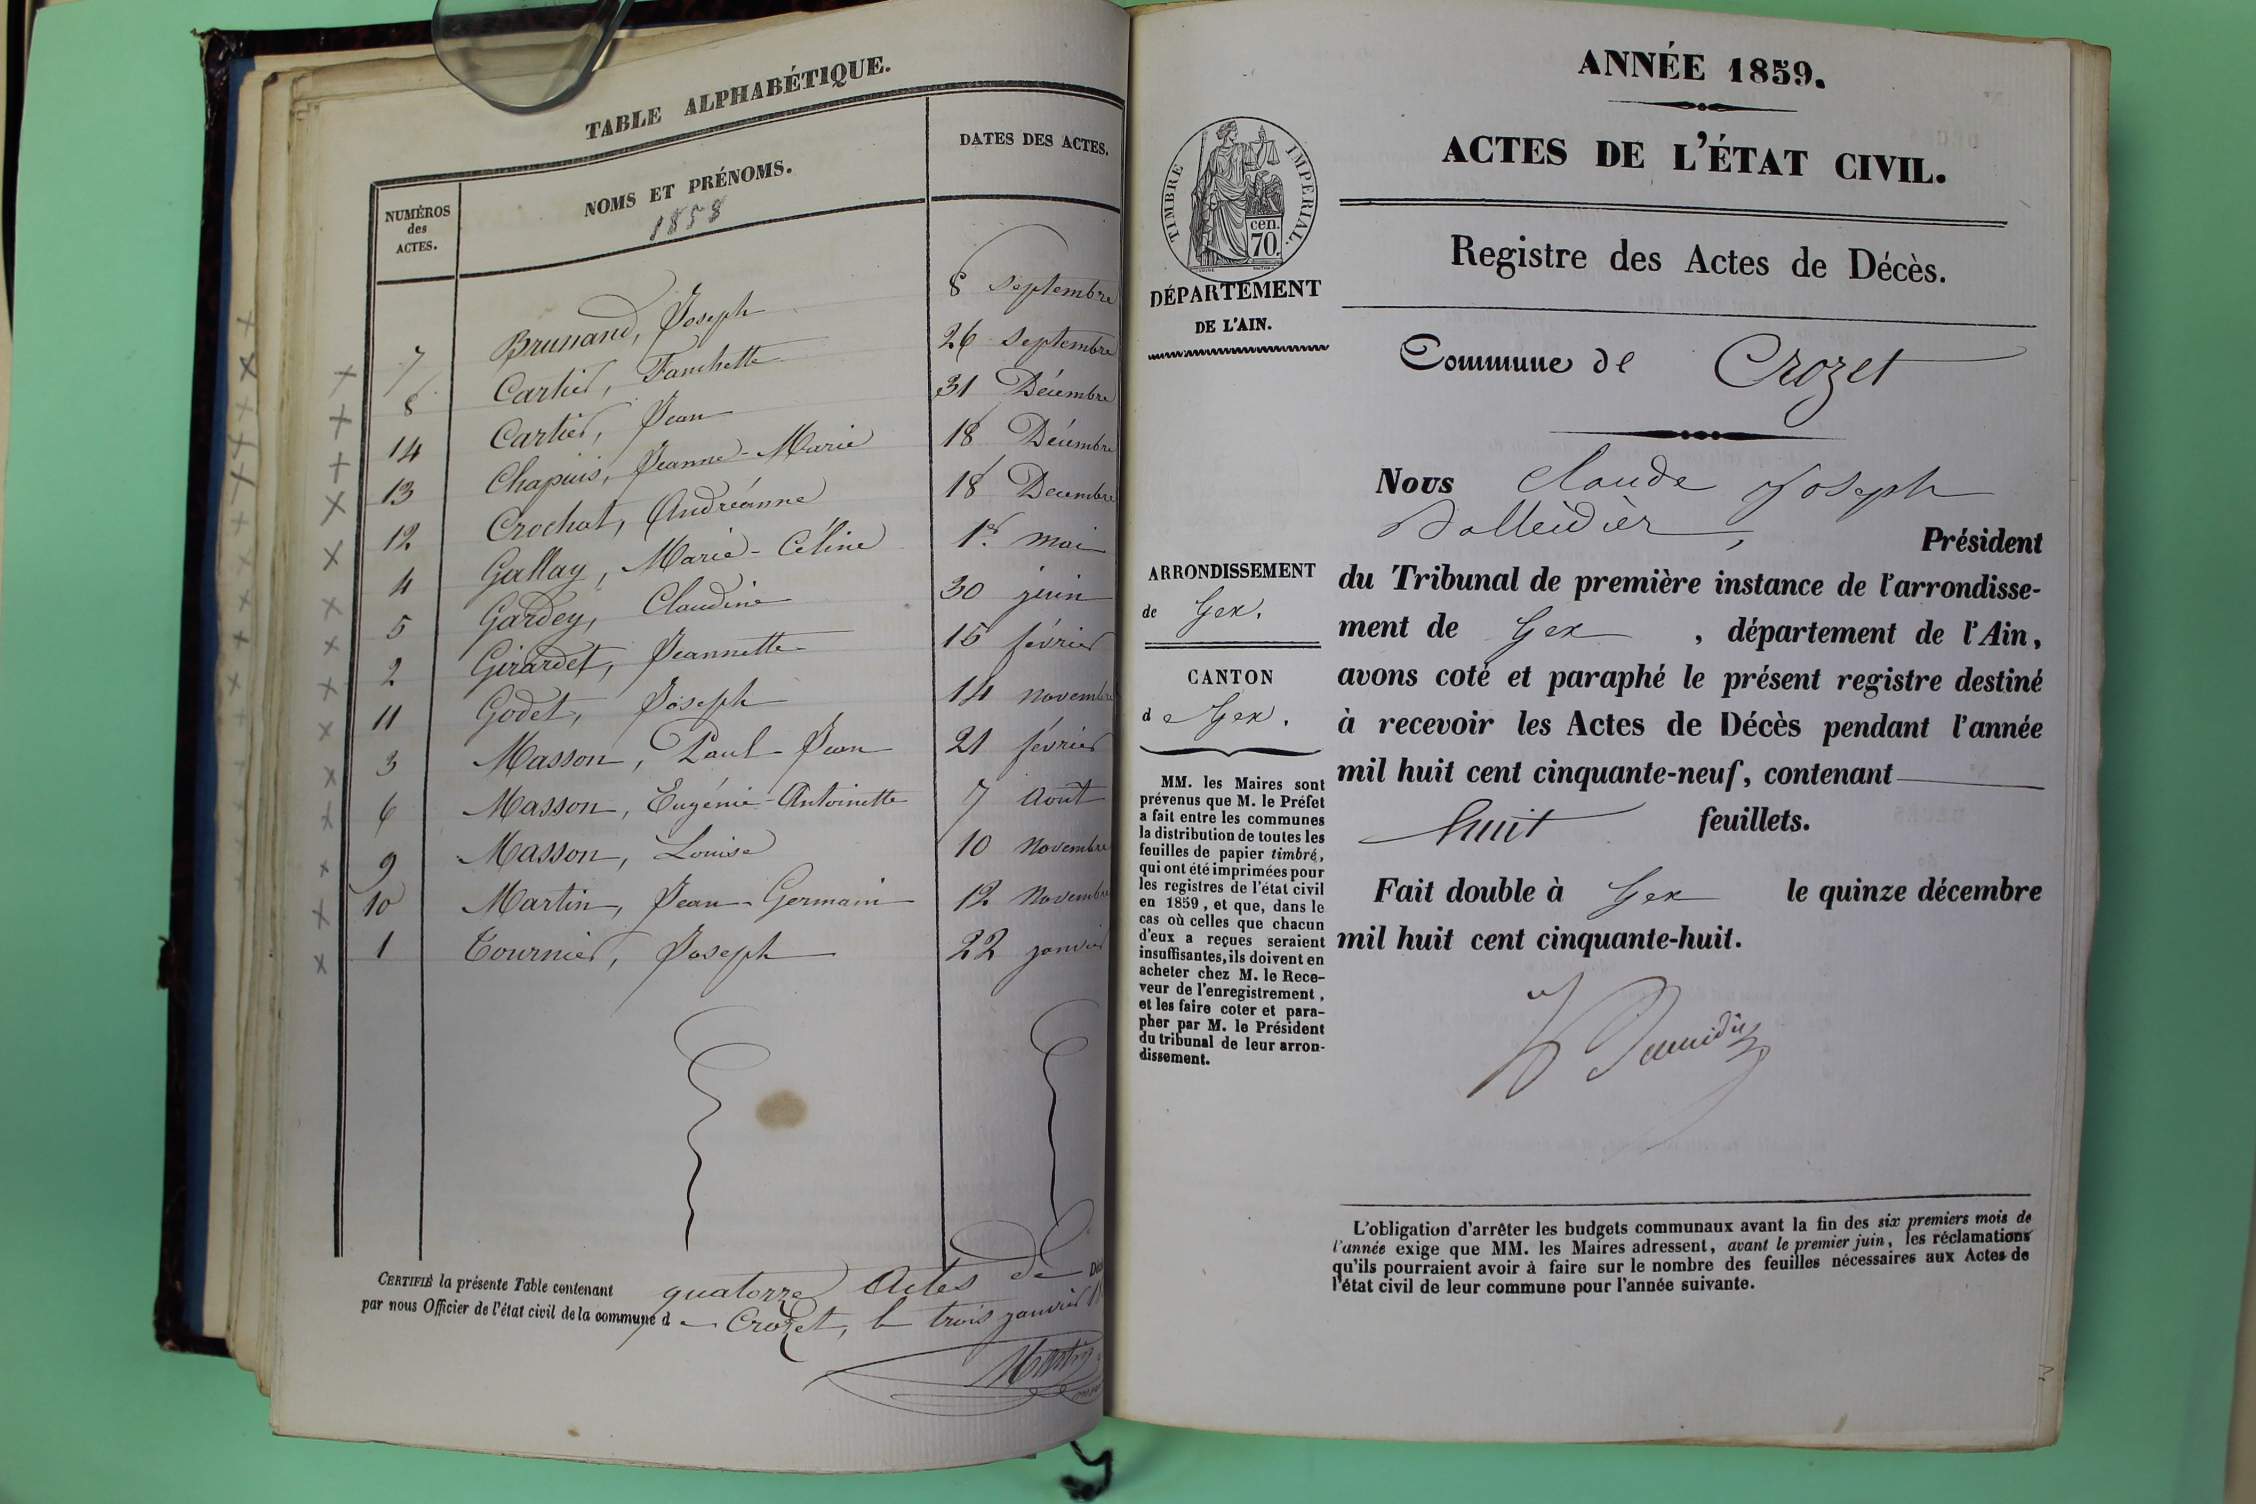 TABLE ALPHABÉTIQUE.
NUMÉROS des ACTES.
NOMS ET PRÉNOMS.
1858
DATES DES ACTES.
7 Brunand, Joseph 8 septembre
8 Cartier, Fanchette 26 septembre
14 Cartier, Jean 31 Décembre
13 Chapuis, Jeanne-Marie 18 Décembre
12 Crochat, Andréanne 18 Decembre
4 Gallay, Marie-Céline 1er mai
5 Gardey, Claudine 30 juin
2 Girardet, Jeannette 15 février
11 Godet, Joseph 14 novembre
3 Masson, Paul-Jean 21 février
6 Masson, Eugénie-Antoinette 7 Août
9 Masson, Louise 10 Novembre
10 Martin, Jean-Germain 12 Novembre
1 Tournier, Joseph 22 janvier
CERTIFIÉ la présente Table contenant quatorze Actes de
par nous Officier de l'état civil de la commune d e Crozet, le trois janvier
ANNÉE 1859.
ACTES DE L'ÉTAT CIVIL.
TIMBRE IMPÉRIAL.
cen.
70.
DÉPARTEMENT
DE L'AIN.
Registre des Actes de Décès.
Commune de Crozet
ARRONDISSEMENT
de Gex.
CANTON
d e Gex.
MM. les Maires sont
prévenus que M. le Préfet
a fait entre les communes
la distribution de toutes les
feuilles de papier timbré,
qui ont été imprimées pour
les registres de l'état civil
en 1859, et que, dans le
cas où celles que chacun
d'eux a reçues seraient
insuffisantes, ils doivent en
acheter chez M. le Rece-
veur de l'enregistrement,
et les faire coter et para-
pher par M. le Président
du tribunal de leur arron-
dissement.
Nous Claude Joseph
Balleidier, Président
du Tribunal de première instance de l'arrondisse-
ment de Gex, département de l'Ain,
avons coté et paraphé le présent registre destiné
à recevoir les Actes de Décès pendant l'année
mil huit cent cinquante-neuf, contenant
huit feuillets.
Fait double à Gex le quinze décembre
mil huit cent cinquante-huit.
L'obligation d'arrêter les budgets communaux avant la fin des six premiers mois de
l'année exige que MM. les Maires adressent, avant le premier juin, les réclamations
qu'ils pourraient avoir à faire sur le nombre des feuilles nécessaires aux Actes de
l'état civil de leur commune pour l'année suivante.